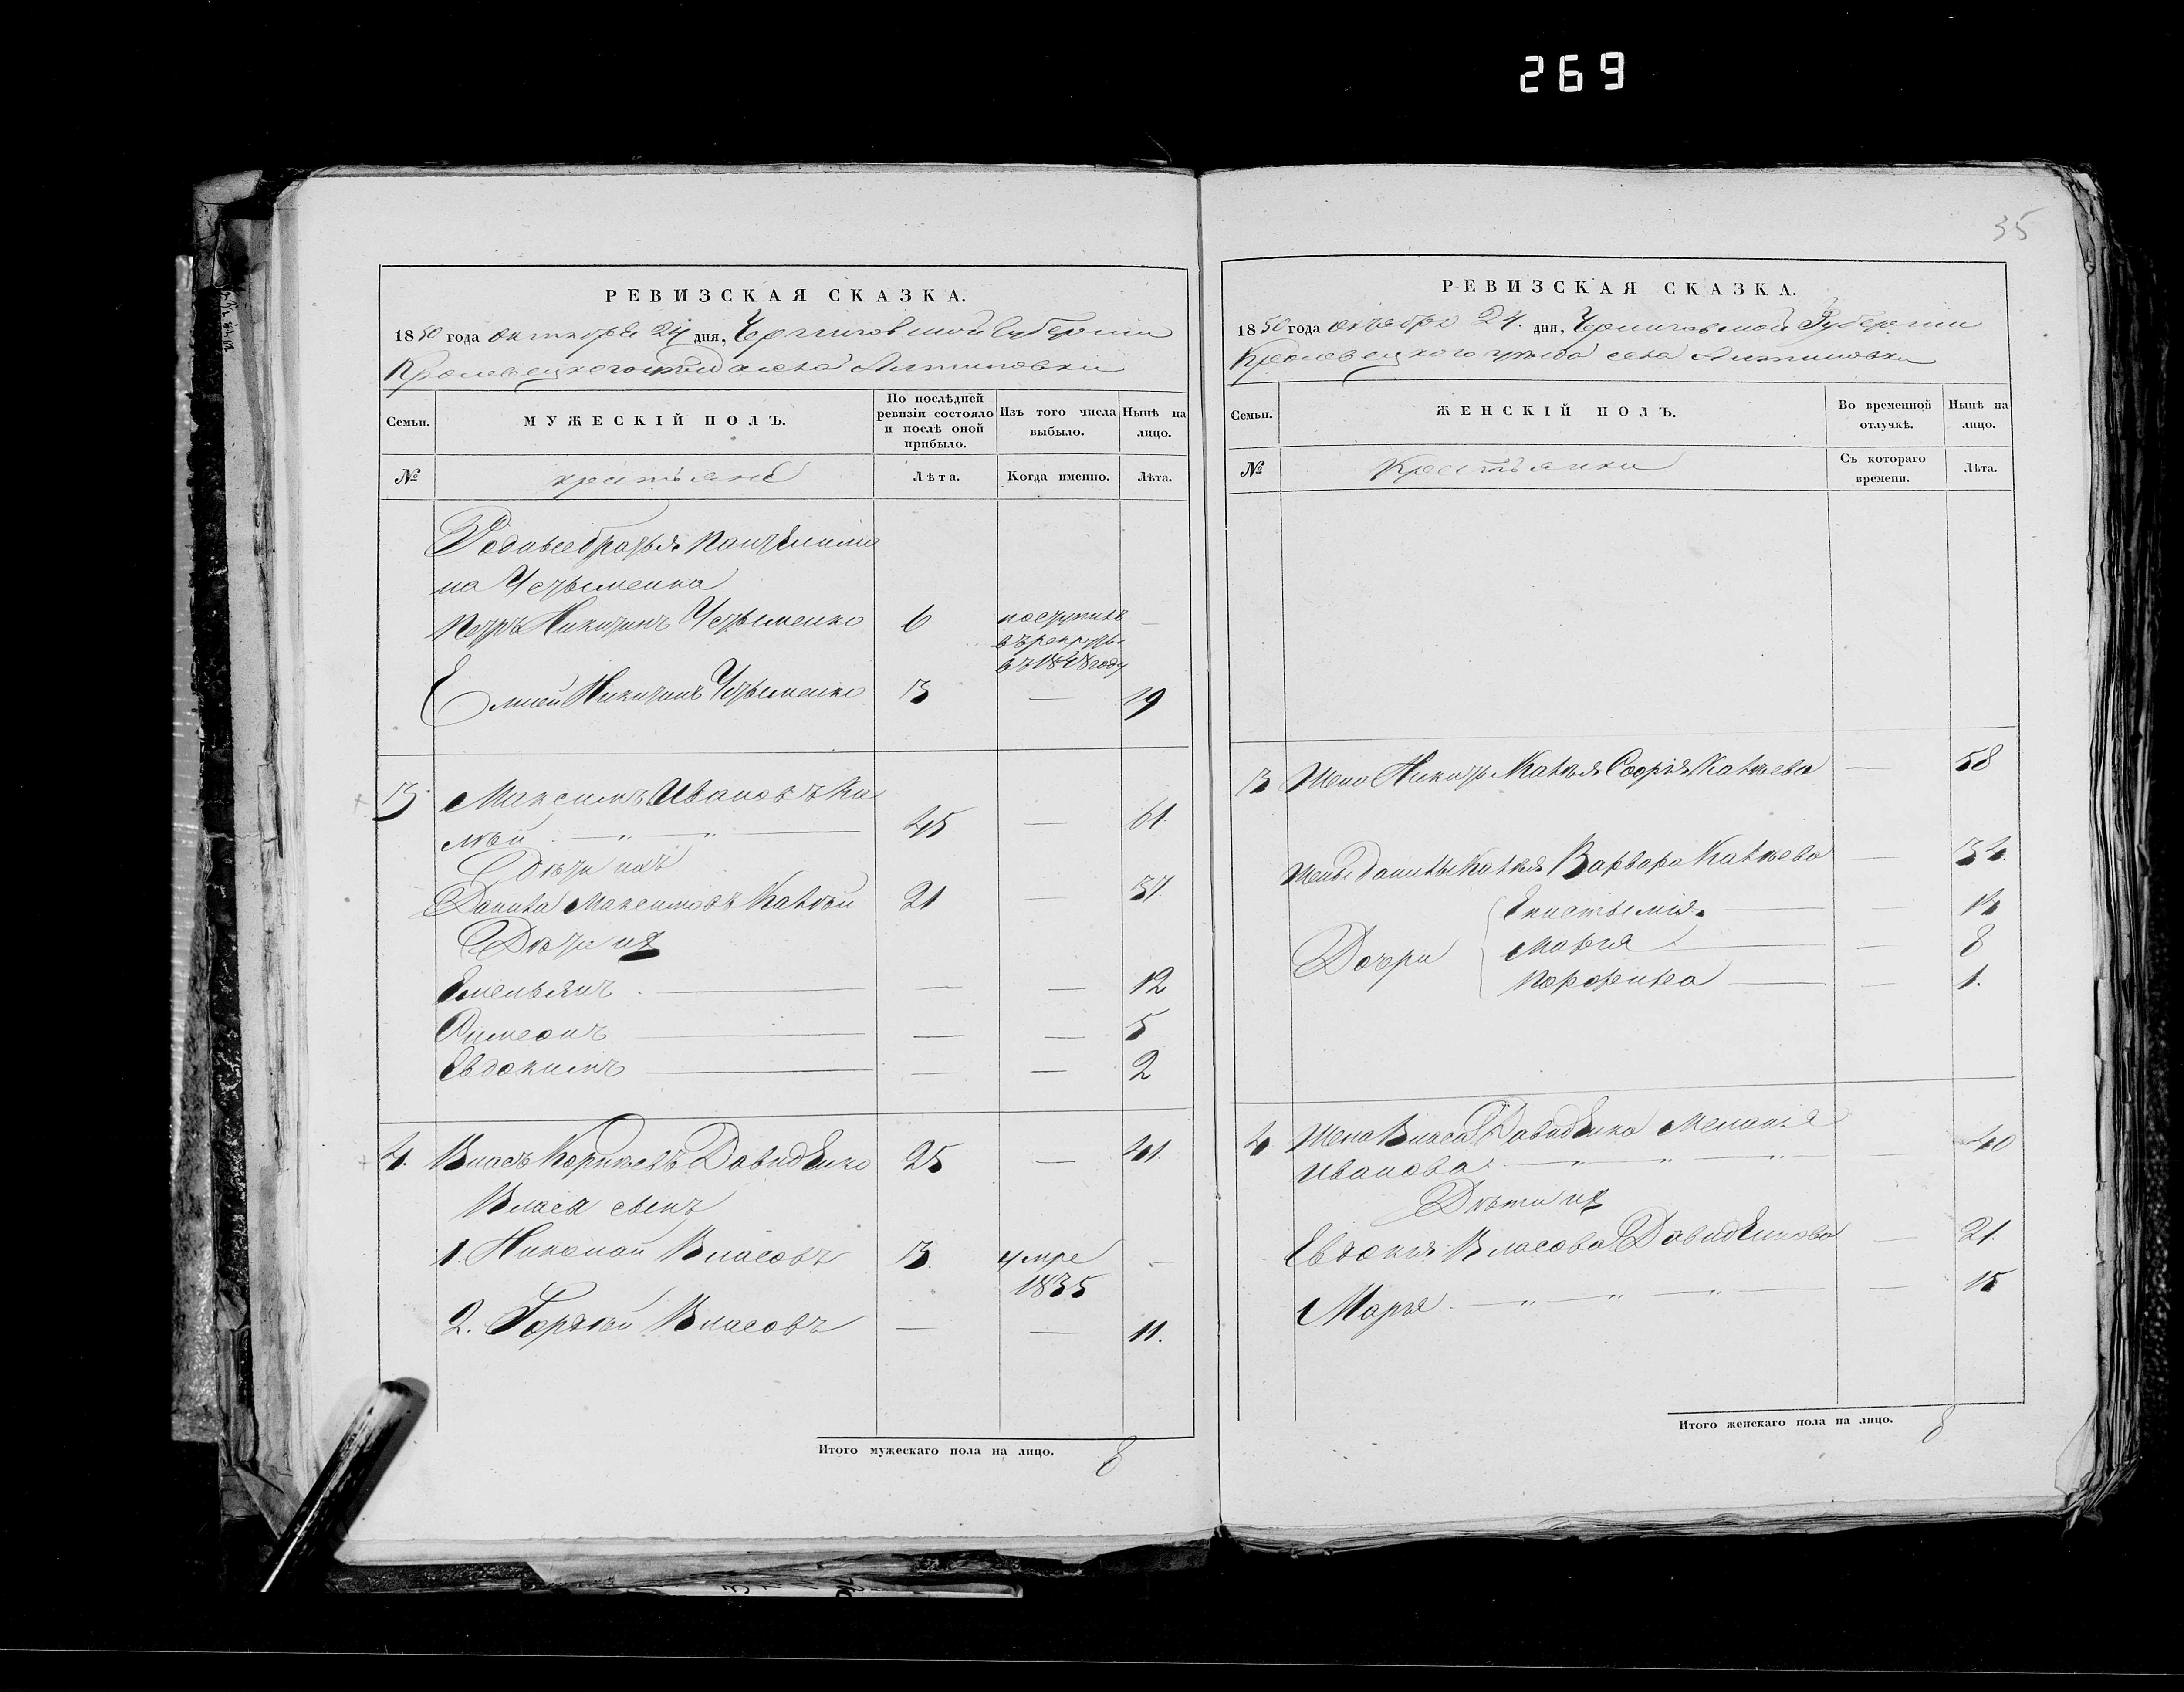 269
35
РЕВИЗСКАЯ СКАЗКА.
1850 года октября 24 дня, Черниговской Губернии
Кролевецкого уезда села Алтиновки
Семьи. МУЖЕСКІЙ ПОЛЪ. По послѣдней ревизіи состояло и послѣ оной прибыло. Изъ того числа выбыло. Нынѣ на лицо.
№ крестьяне Лѣта. Когда именно. Лѣта.
Родные братья
на
Петръ Никитинъ 6 поступилъ —
въ рекруты
въ 1848 году
Елисей Никитинъ 3 — 19
3. Максимъ Ивановъ Ка
лѣй — „ — „ — 45 — 61.
Дѣти ихъ
Данила Максимовъ Калѣй 21 — 37
Дѣти их
Емельянъ — — — 12
Симеонъ — — — 5
Евдокимъ — — — 2
4. Власъ Корнѣевъ Давиденко 25 — 41.
Власа сынъ
1. Николай Власовъ 3. умре —
1835
2. Гордѣй Власовъ — — 11.
Итого мужескаго пола на лицо. 8
РЕВИЗСКАЯ СКАЗКА.
1850 года октября 24. дня, Черниговской Губернии
Кролевецкого уезда села Алтиновки
Семьи. ЖЕНСКІЙ ПОЛЪ. Во временной отлучкѣ. Нынѣ на лицо.
№ Крестьянки Съ котораго времени. Лѣта.
3 Жена Калѣя Софія Калѣева — 58
Жена Данилы Калѣя Варвара Калѣева — 34.
Дочери Екистемія — — 14
Марія — — 8
— — 1.
4 Жена Власа Давиденка Меланья
Иванова — „ — „ — „ — — 40
Дѣти их
Евдокія Власова Давиденкова — 21.
Марья — „ — „ — „ — — 15
Итого женскаго пола на лицо. 8